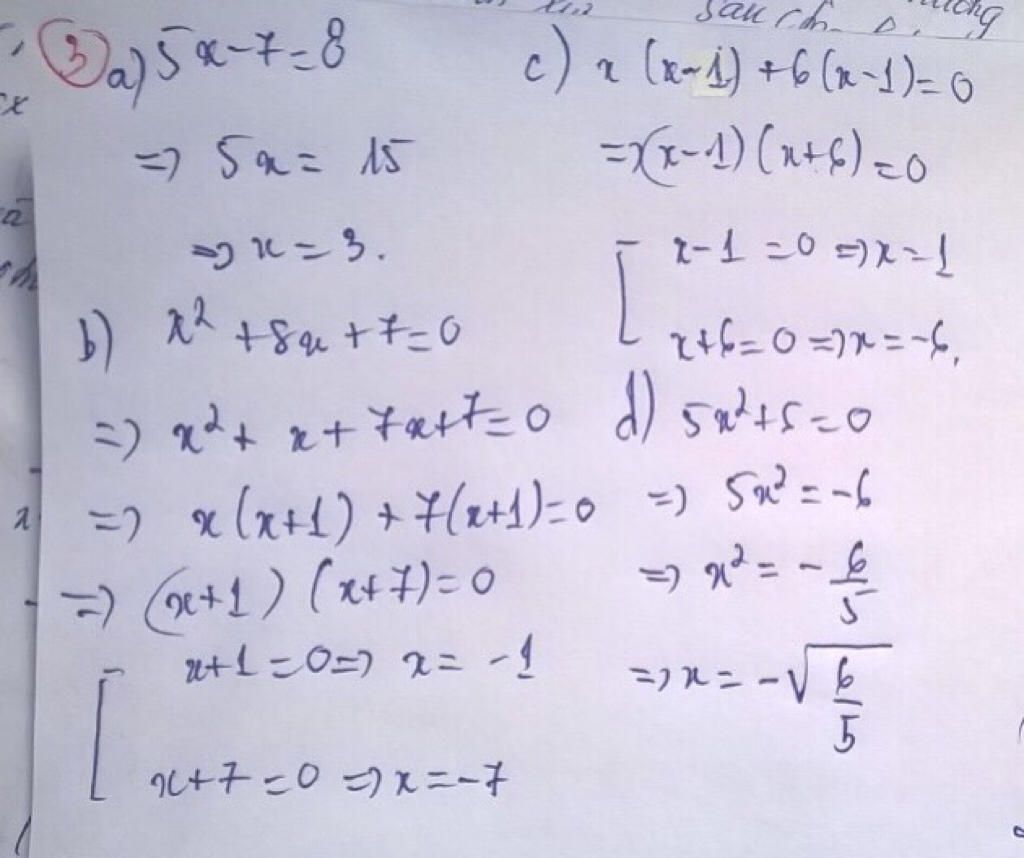 3 a) 5x-7=8
=> 5x = 15
=> x = 3.
b) x² + 8x + 7 = 0
=> x² + x + 7x+7 = 0
=> x(x+1) + 7(x+1) = 0
=> (x+1) (x+7) = 0
[ x+1 = 0 => x = -1
x+7 = 0 => x = -7
c) x (x-1) + 6(x-1) = 0
=> (x-1) (x+6) = 0
[ x-1 = 0 => x = 1
x+6 = 0 => x = -6.
d) 5x²+5 = 0
=> 5x² = -6
=> x² = - 6/5
=> x = -√(6/5)